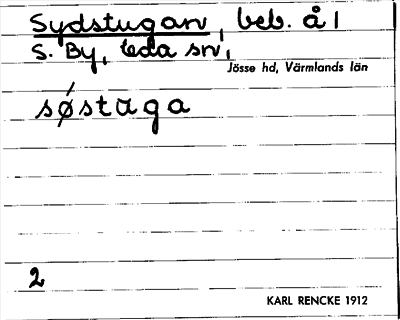 Sydstugan, beb. å 1
S. By, Eda sn,
Jösse hd, Värmlands län
sǿstuga
2
KARL RENCKE 1912